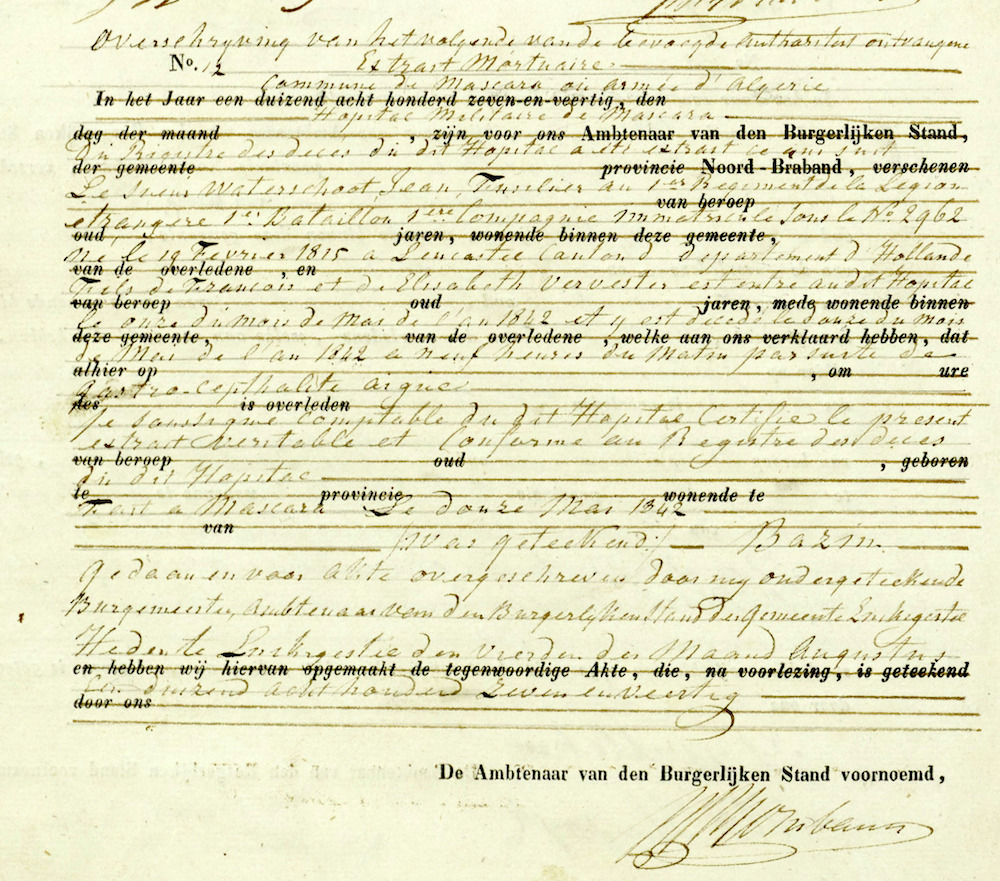 Overschryving van het volgende van de bevoegde autoriteit ontvangene
No. 12 Extrait Mortuaire
Commune de Mascara ou armée d'Algerie
In het Jaar een duizend acht honderd zeven-en-veertig, den
Hopital Militaire de Mascara
dag der maand , zijn voor ons Ambtenaar van den Burgerlijken Stand,
Du Registre des deces du dit Hopital a été extrait ce qui suit
der gemeente provincie Noord-Braband, verschenen
Le sieur Waterschoot, Jean, Fusilier au 1er Regiment de la Legion
van beroep
etrangere 1er Bataillon 1ere Compagnie immatricule sous le No 2962
oud jaren, wonende binnen deze gemeente,
né le 19 Fevrier 1815 a Canton d departement d'Hollande
van de overledene , en
Fils de Francois et de Elisabeth Vervester est entré au dit Hopital
van beroep oud jaren, mede wonende binnen
le onze du mois de Mai de l'an 1842 et y est decedé le douze du mois
deze gemeente, van de overledene , welke aan ons verklaard hebben, dat
de Mai de l'an 1842 a neuf heures du Matin par suite de
alhier op , om ure
gastro-cephalite aigue
des is overleden
Je soussigné comptable du dit Hopital Certifie le present
extrait veritable et Conforme au Registre des deces
van beroep oud , geboren
du dit Hopital
te provincie wonende te
Fait a Mascara Le douze Mai 1842
van
(was geteekend:) Bazin
Gedaan en voor akte overgeschreven door my ondergeteekende
Burgemeester, Ambtenaar van den Burgerlyken Stand der Gemeente
Heden te den vierden der Maand Augustus
en hebben wij hiervan opgemaakt de tegenwoordige Akte, die, na voorlezing, is geteekend
Een duizend acht honderd Zeven en veertig
door ons
De Ambtenaar van den Burgerlijken Stand voornoemd,